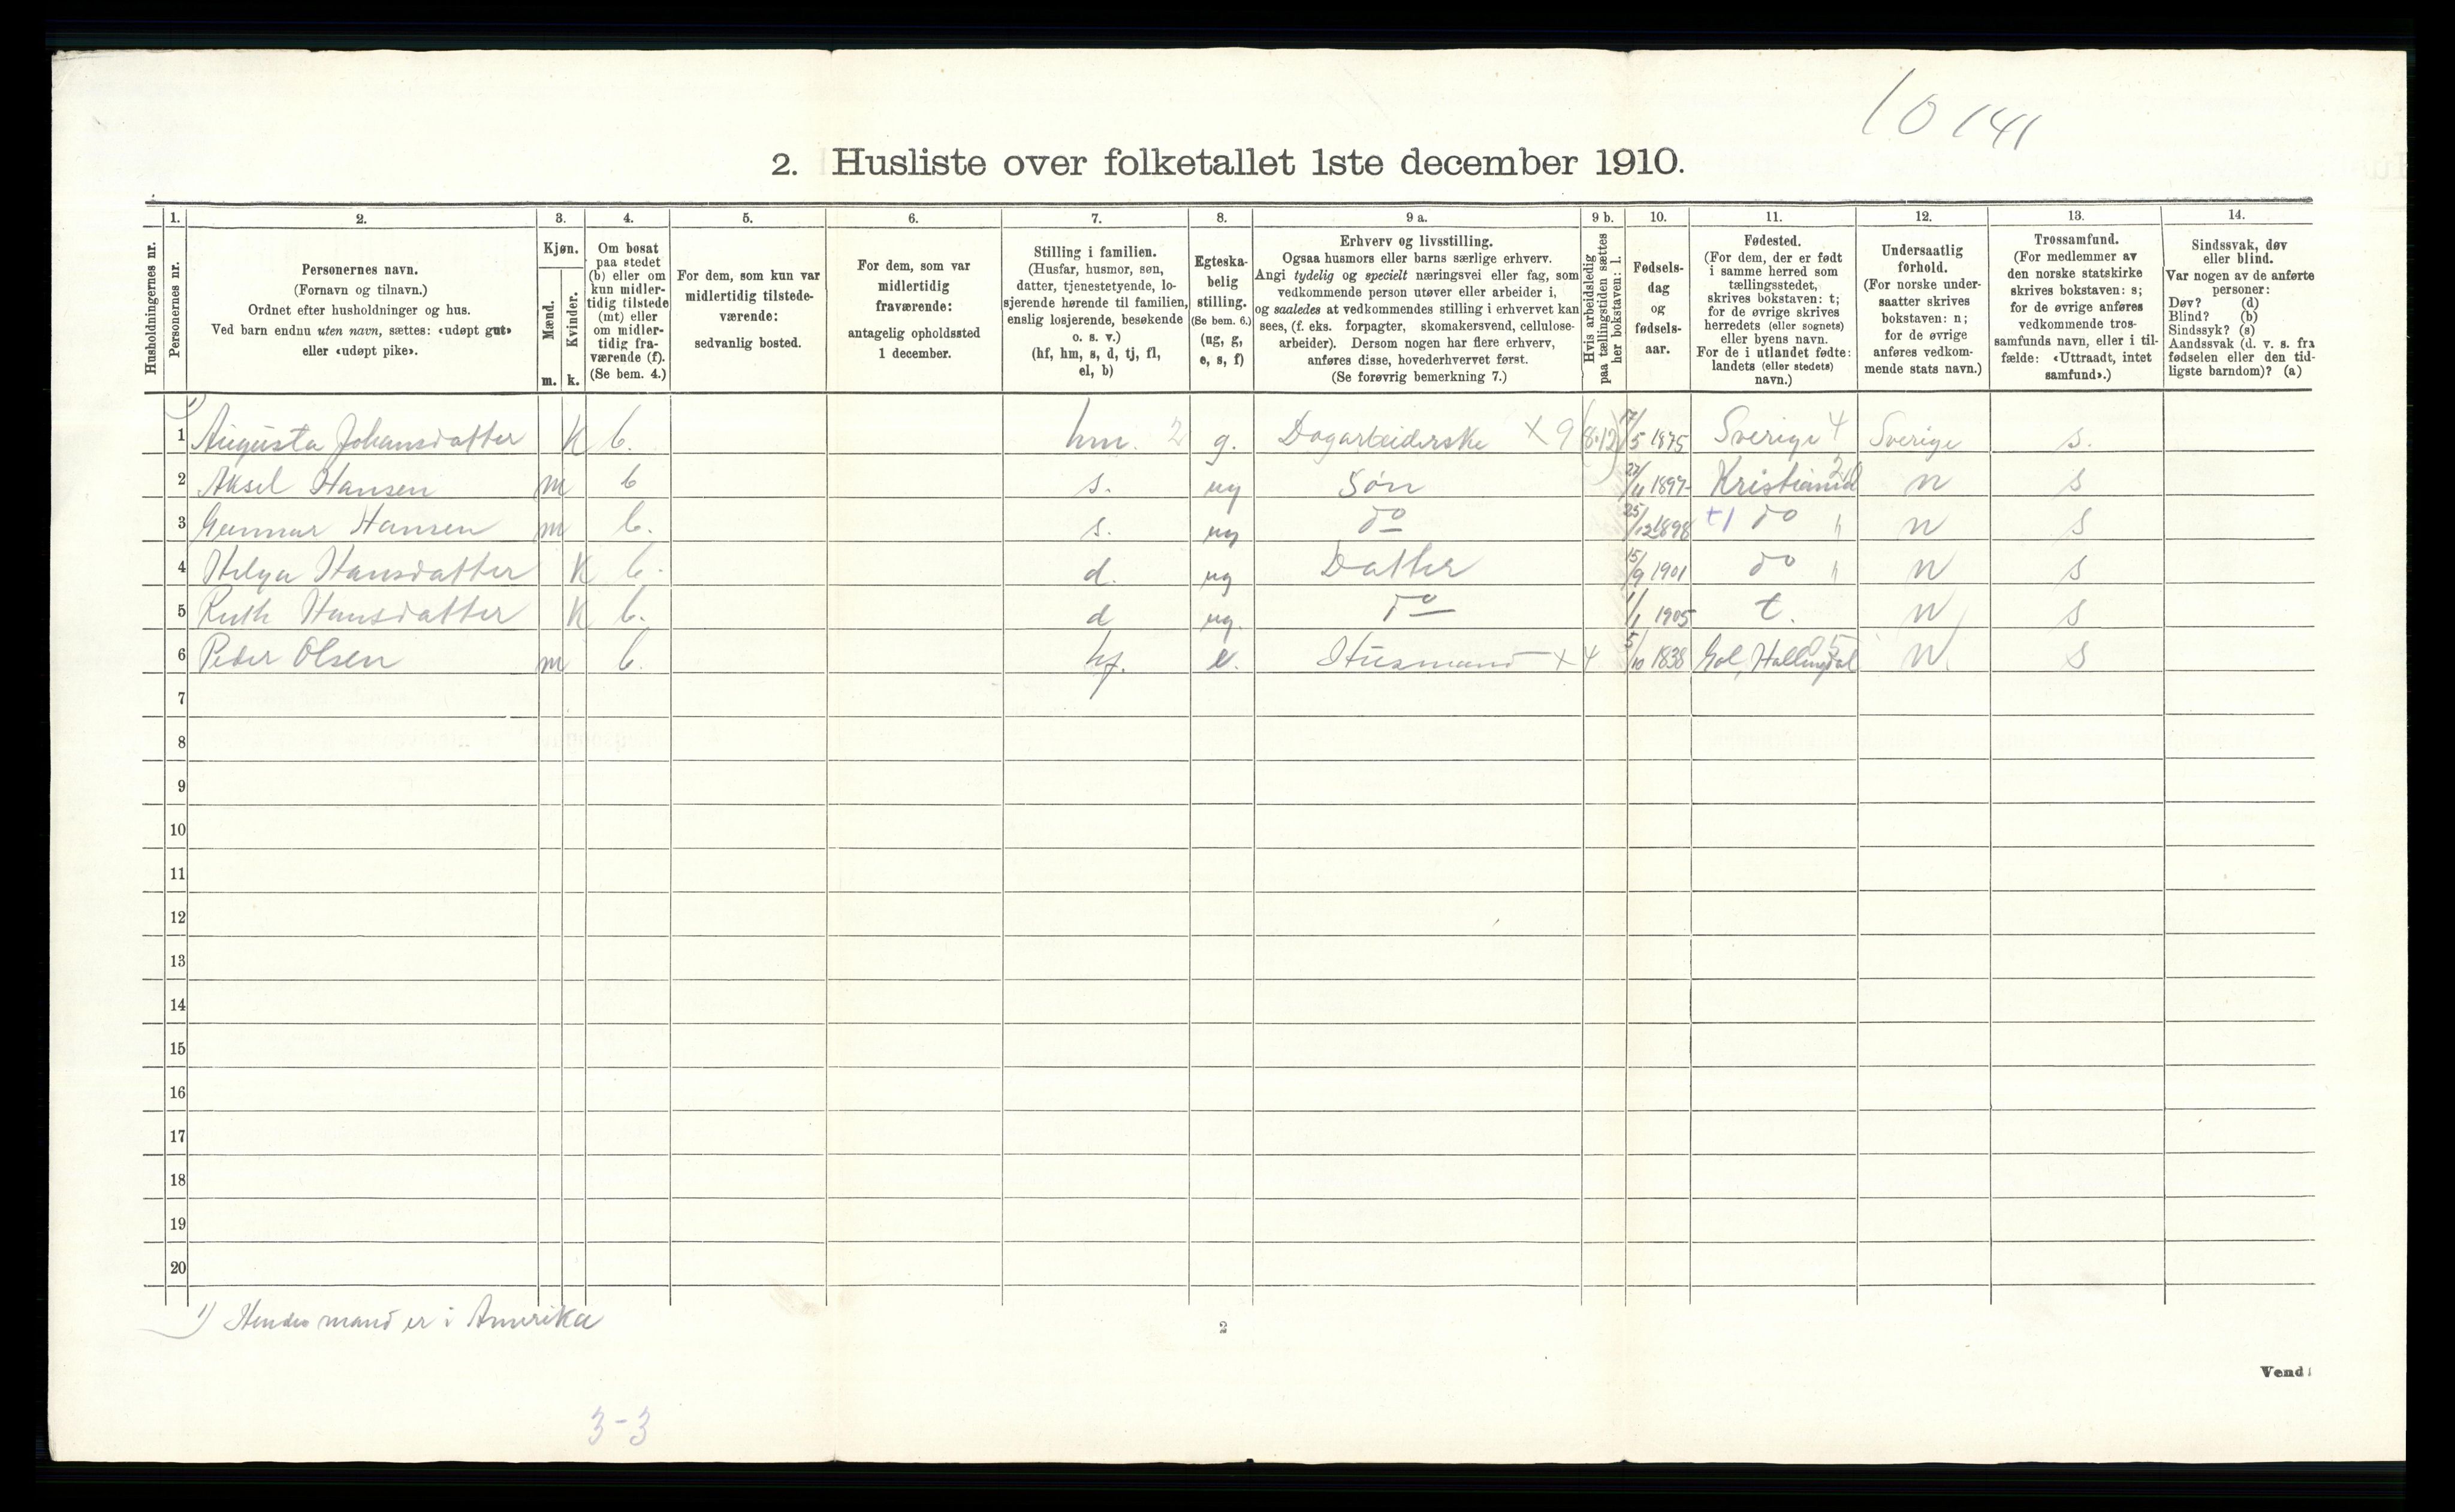 10 141
2. Husliste over folketallet 1ste december 1910.
Husholdningernes nr.
1.
Personernes nr.
2.
Personernes navn.
(Fornavn og tilnavn.)
Ordnet efter husholdninger og hus.
Ved barn endnu uten navn, sættes: «udøpt gut»
eller «udøpt pike».
3.
Kjøn.
Mænd.
Kvinder.
m. k.
4.
Om bosat
paa stedet
(b) eller om
kun midler-
tidig tilstede
(mt) eller
om midler-
tidig fra-
værende (f).
(Se bem. 4.)
5.
For dem, som kun var
midlertidig tilstede-
værende:
sedvanlig bosted.
6.
For dem, som var
midlertidig
fraværende:
antagelig opholdssted
1 december.
7.
Stilling i familien.
(Husfar, husmor, søn,
datter, tjenestetyende, lo-
sjerende hørende til familien,
enslig losjerende, besøkende
o. s. v.)
(hf, hm, s, d, tj, fl,
el, b)
8.
Egteska-
belig
stilling.
(Se bem. 6.)
(ug, g,
e, s, f)
9 a.
Erhverv og livsstilling.
Ogsaa husmors eller barns særlige erhverv.
Angi tydelig og specielt næringsvei eller fag, som
vedkommende person utøver eller arbeider i,
og saaledes at vedkommendes stilling i erhvervet kan
sees, (f. eks. forpagter, skomakersvend, cellulose-
arbeider). Dersom nogen har flere erhverv,
anføres disse, hovederhvervet først.
(Se forøvrig bemerkning 7.)
9 b.
Hvis arbeidsledig
paa tællingstiden sættes
her bokstaven: l.
10.
Fødsels-
dag
og
fødsels-
aar.
11.
Fødested.
(For dem, der er født
i samme herred som
tællingsstedet,
skrives bokstaven: t;
for de øvrige skrives
herredets (eller sognets)
eller byens navn.
For de i utlandet fødte:
landets (eller stedets)
navn.)
12.
Undersaatlig
forhold.
(For norske under-
saatter skrives
bokstaven: n;
for de øvrige
anføres vedkom-
mende stats navn.)
13.
Trossamfund.
(For medlemmer av
den norske statskirke
skrives bokstaven: s;
for de øvrige anføres
vedkommende tros-
samfunds navn, eller i til-
fælde: «Uttraadt, intet
samfund».)
14.
Sindssvak, døv
eller blind.
Var nogen av de anførte
personer:
Døv? (d)
Blind? (b)
Sindssyk? (s)
Aandssvak (d. v. s. fra
fødselen eller den tid-
ligste barndom)? (a)
1) 1 Augusta Johansdatter K b. hm. 2 g. Dagarbeiderske x 9 (8.12) 17/5 1875 Sverige 4 Sverige s.
2 Aksel Hansen m b s. ug Søn 1897 Kristiania n s
3 Gunnar Hansen m b. s. ug do 25/12 1898 t1 do n s
4 Helga Hansdatter K b. d. ug Datter 15/9 1901 do n s
5 Ruth Hansdatter K b. d ug. do 1/1 1905 t. n s
6 Peder Olsen m b. hf. e. Husmand x 4 5/10 1838 Gol, Hallingdal 05 n s
7
8
9
10
11
12
13
14
15
16
17
18
19
20
1) Hendes mand er i Amerika
2
Vend!
3-3